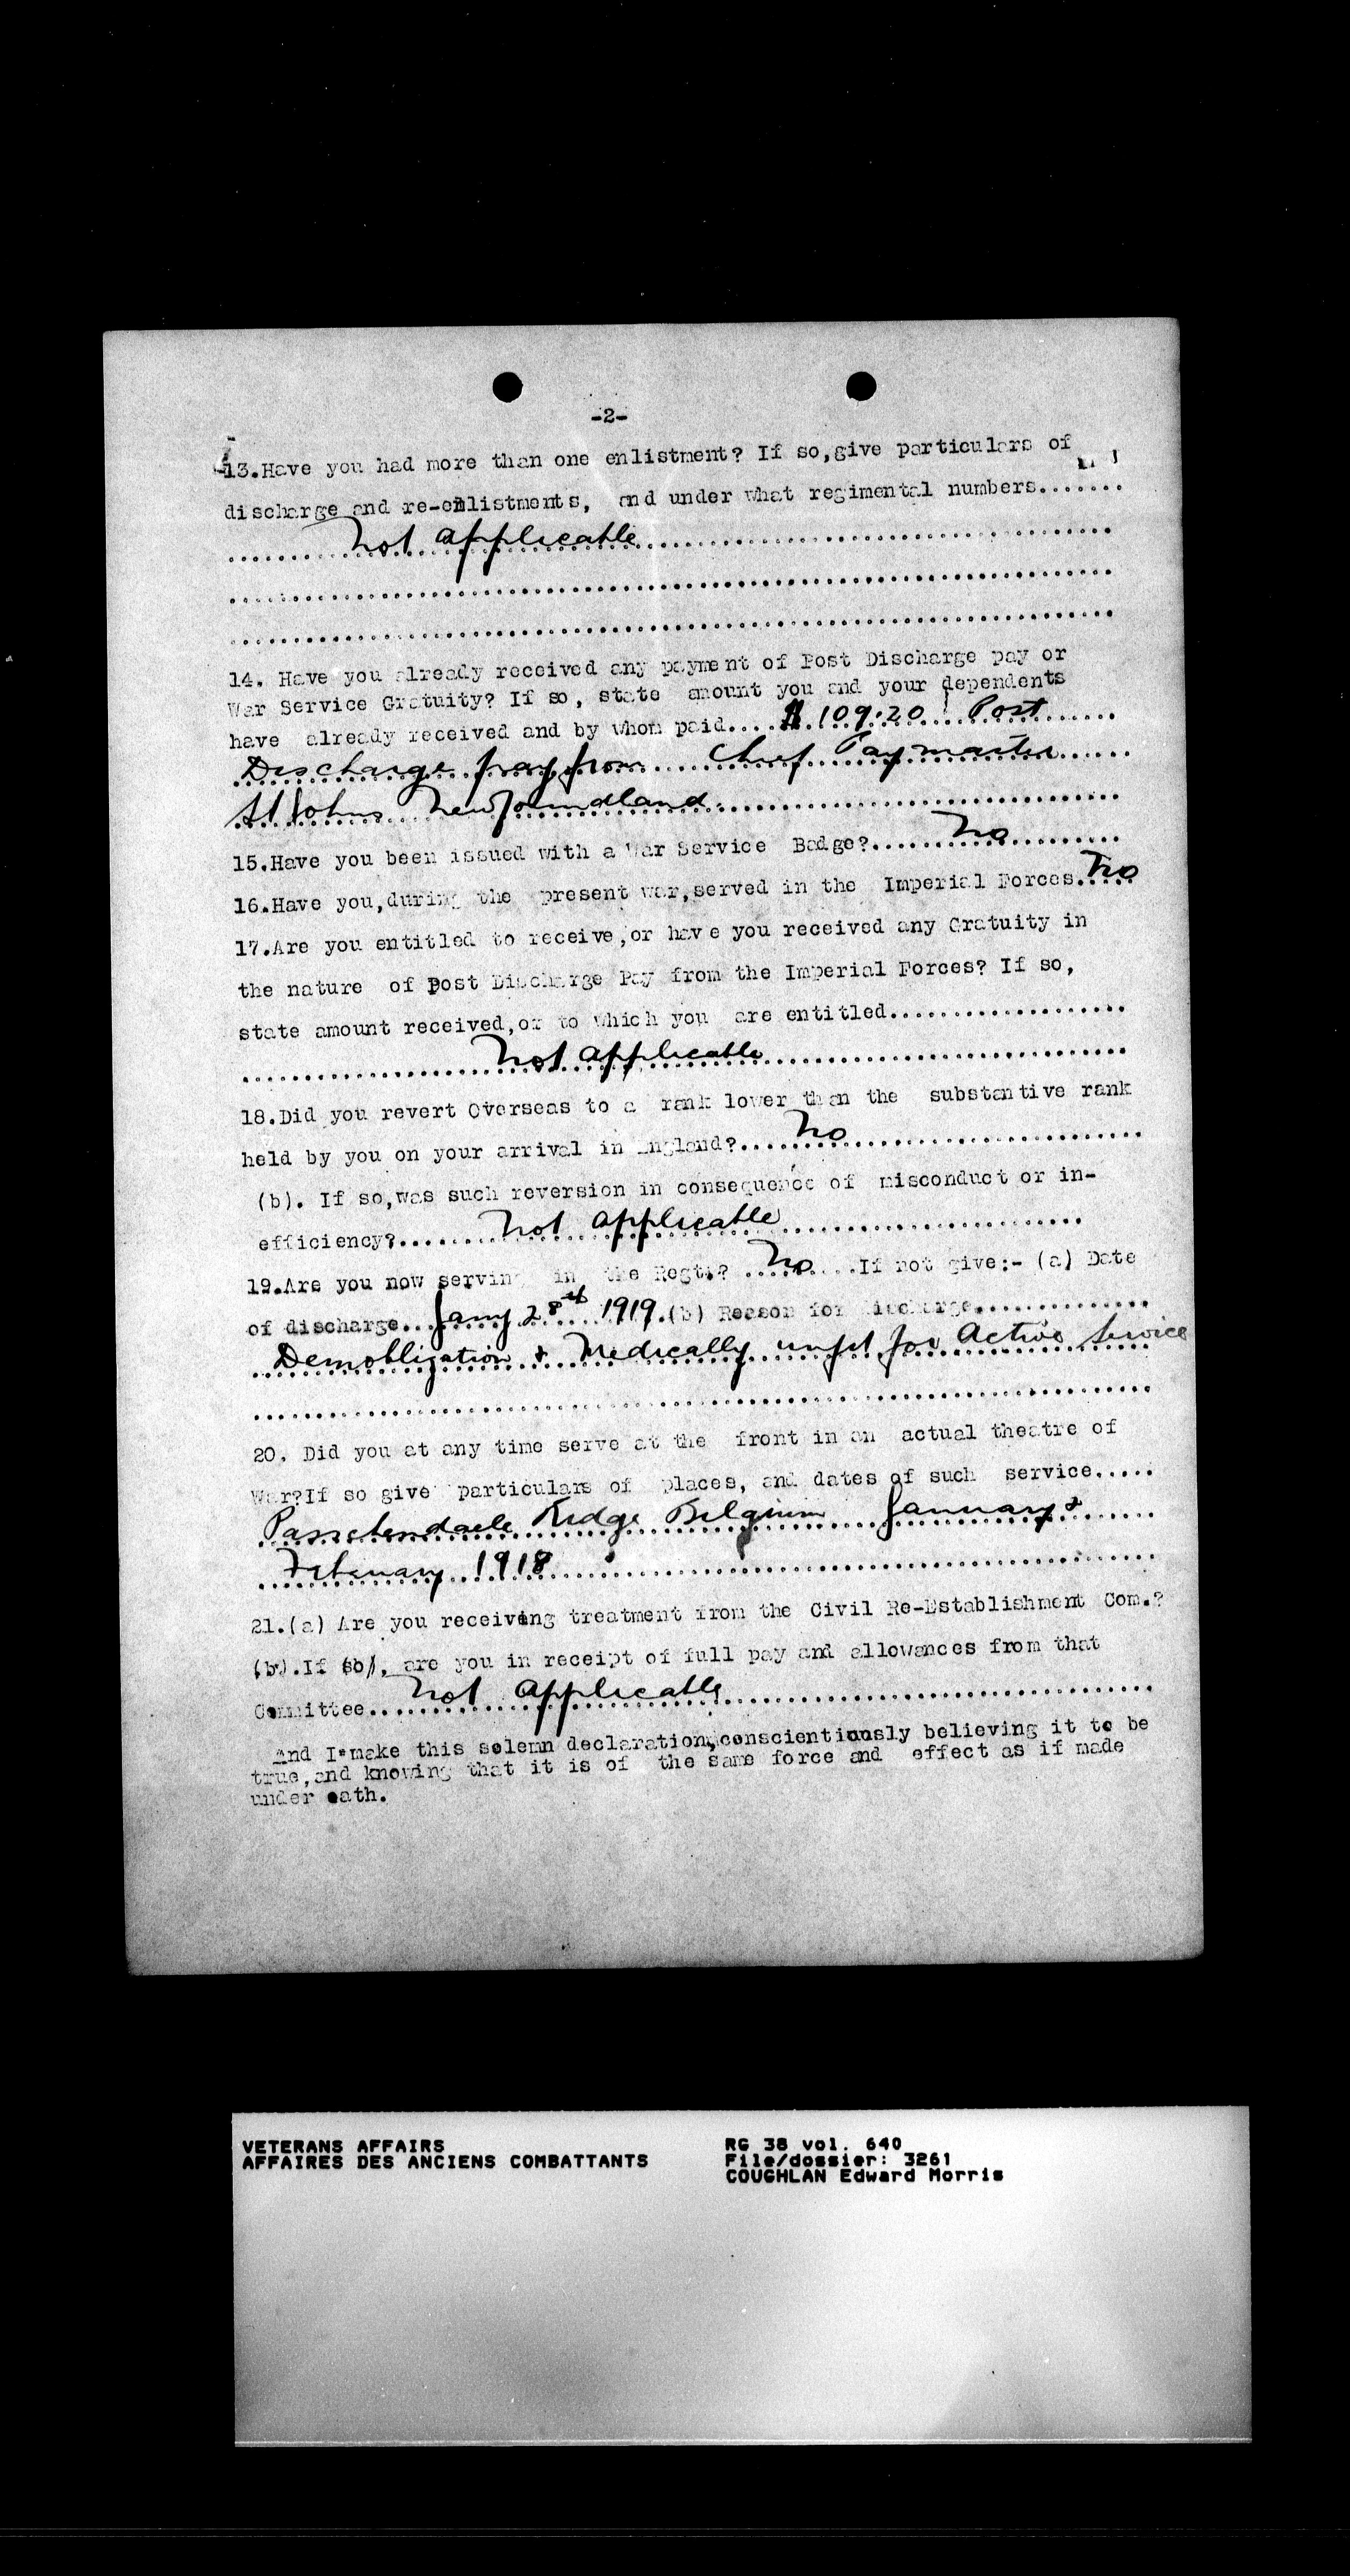 -2-
13.Have you had more than one enlistment? If so,give particulars of
discharge and re-enlistments, and under what regimental numbers.......
Not applicable
14. Have you already received any payment of Post Discharge pay or
War Service Gratuity? If so, state amount you and your dependents
have already received and by whom paid.... $109.20 Post
Discharge pay from Chief Paymaster
St Johns Newfoundland
15.Have you been issued with a War Service Badge?.....No
16.Have you,during the present war,served in the Imperial Forces.No
17.Are you entitled to receive,or have you received any Gratuity in
the nature of Post Discharge Pay from the Imperial Forces? If so,
state amount received,or to which you are entitled...................
Not applicable
18.Did you revert Overseas to a rank lower than the substantive rank
held by you on your arrival in England?....No
(b). If so,was such reversion in consequence of misconduct or in-
efficiency?......Not applicable
19.Are you now serving in the Regt.? ..No....If not give:- (a) Date
of discharge...Jany 28th 1919.(b) Reason for discharge..............
Demobligation & Medically unfit for Active Service
20. Did you at any time serve at the front in an actual theatre of
War?If so give particulars of places, and dates of such service.....
Passchendaele Ridge Belgium January &
February 1918
21.(a) Are you receiving treatment from the Civil Re-Establishment Com.?
(b).If so, are you in receipt of full pay and allowances from that
Committee...Not applicable
And I make this solemn declaration,conscientiously believing it to be
true,and knowing that it is of the same force and effect as if made
under oath.
VETERANS AFFAIRS
AFFAIRES DES ANCIENS COMBATTANTS
RG 38 vol. 640
File/dossier: 3261
COUGHLAN Edward Morris